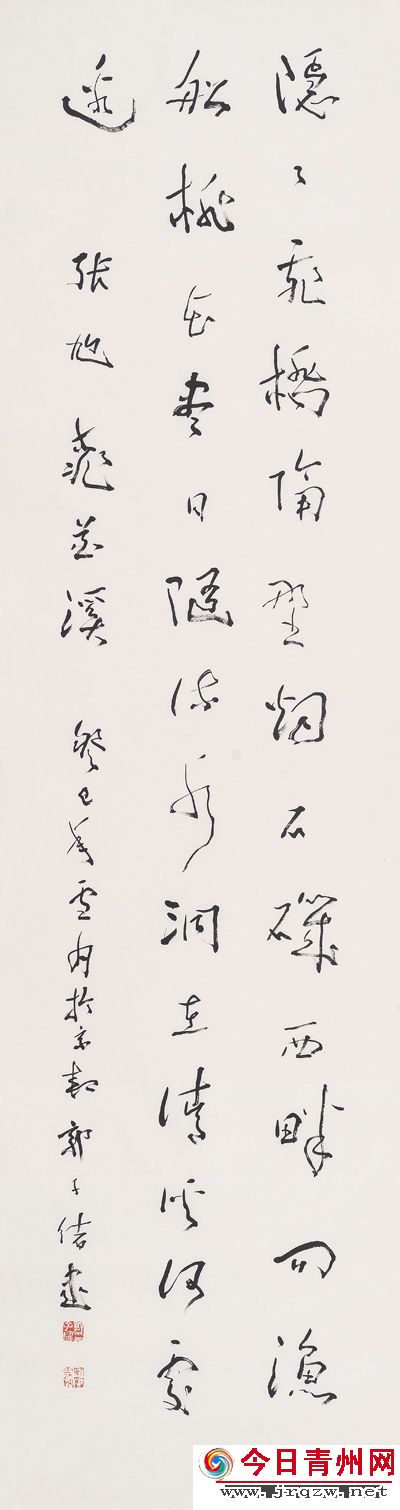 隱々飛橋隔野烟石磯西畔問漁
船桃花盡日隨流水洞在清溪何處
邊 張旭桃花溪 癸巳 雪 於京 郭 書
今日青州网
www.jrqzw.net